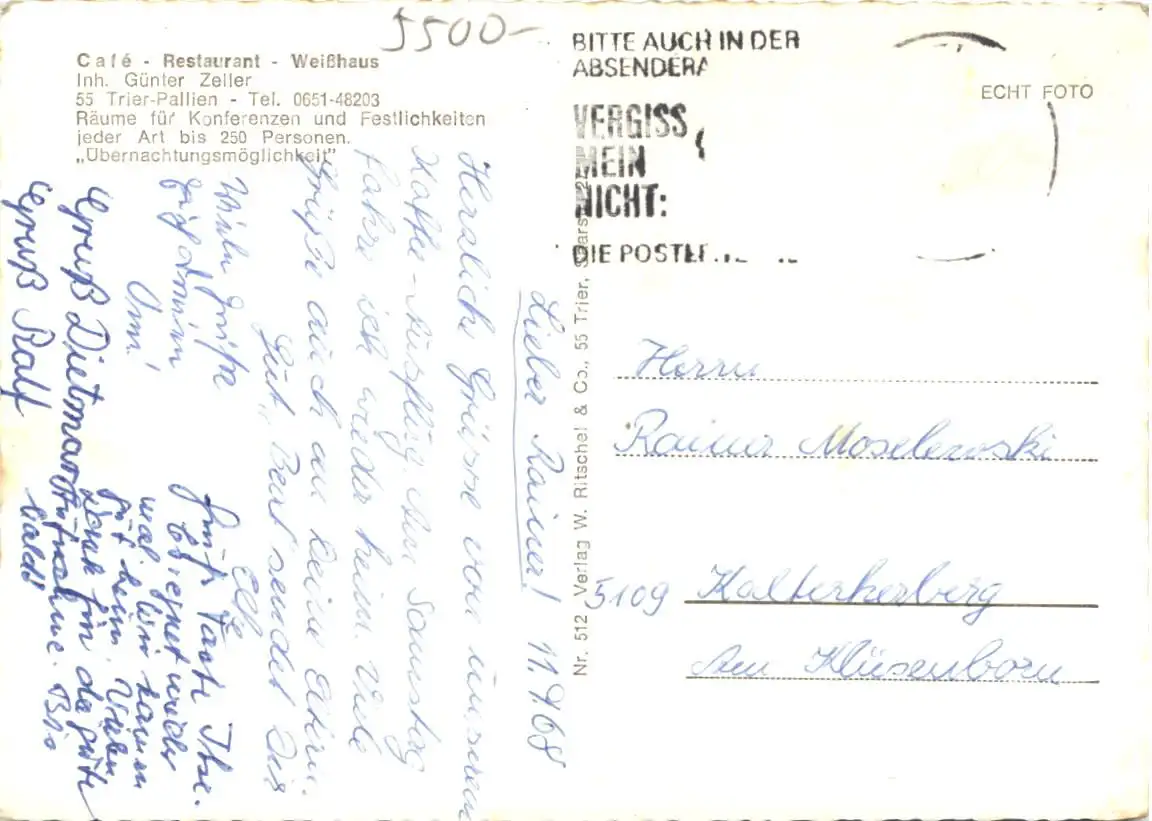 5500-
Café - Restaurant - Weißhaus
Inh. Günter Zeller
55 Trier-Pallien - Tel. 0651-48203
Räume für Konferenzen und Festlichkeiten
jeder Art bis 250 Personen.
„Übernachtungsmöglichkeit"
BITTE AUCH IN DER
ABSENDERA
VERGISS
MEIN
NICHT:
DIE POSTLE
ECHT FOTO
Nr. 512 Verlag W. Ritschel & Co., 55 Trier, Saarstr.
11.9.68
Lieber Rainer!
Herzlich Grüsse von unserem
Kaffe-Ausflug. Am Samstag
fahre ich wieder heim. Viele
Grüße auch an Deine Eltern.
Gute sendet Dir
Viele Grüße
Gruß Dietmar
Gruß Ralf
Gruß Tante Ilse.
Es regnet wieder
mal
Vielen
Dank für die gute
Aufnahme. Bis
bald!
Herrn
Rainer Moselewski
5109 Kalterherberg
Am Klüsenborn